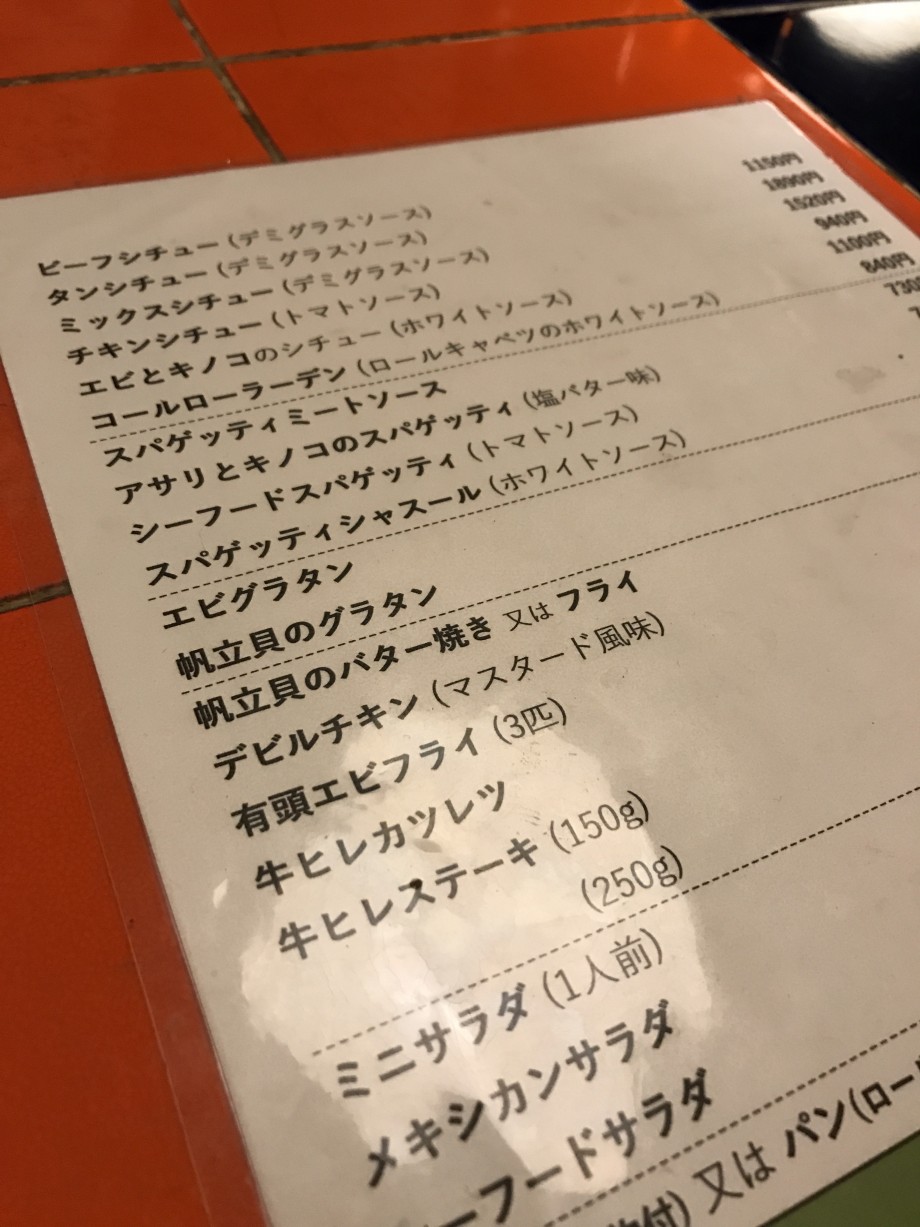 ビーフシチュー(デミグラスソース) 1150円
タンシチュー(デミグラスソース) 1890円
ミックスシチュー(デミグラスソース) 1520円
チキンシチュー(トマトソース) 940円
エビとキノコのシチュー(ホワイトソース) 1100円
コールローラーデン(ロールキャベツのホワイトソース) 840円
スパゲッティミートソース 730
アサリとキノコのスパゲッティ(塩バター味)
シーフードスパゲッティ(トマトソース)
スパゲッティシャスール(ホワイトソース)
エビグラタン
帆立貝のグラタン
帆立貝のバター焼き 又は フライ
デビルチキン(マスタード風味)
有頭エビフライ(3匹)
牛ヒレカツレツ
牛ヒレステーキ(150g)
(250g)
ミニサラダ(1人前)
メキシカンサラダ
ーフードサラダ
付) 又は パン(ロー